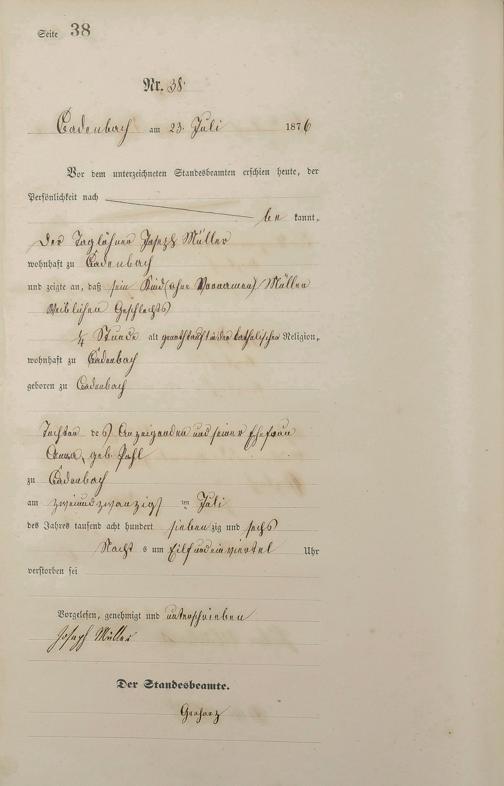 Seite 38
Nr. 38
Cadenbach am 23. Juli 1876
Vor dem unterzeichneten Standesbeamten erschien heute, der
Persönlichkeit nach
be kannt,
der Taglöhner Joseph Müller
wohnhaft zu Cadenbach
und zeigte an, daß sein Kind (ohne Vornamen) Müller
weiblichen Geschlechts
1/4 Stunde alt katholischer Religion,
wohnhaft zu Cadenbach
geboren zu Cadenbach
Tochter des Anzeigenden und seiner Ehefrau
Anna, geb. Pohl
zu Cadenbach
am zweiundzwanzigsten Juli
des Jahres tausend acht hundert sieben zig und sechs
Nacht s um Eilf und ein viertel Uhr
verstorben sei
Vorgelesen, genehmigt und unterschrieben
Joseph Müller
Der Standesbeamte.
Gerharz